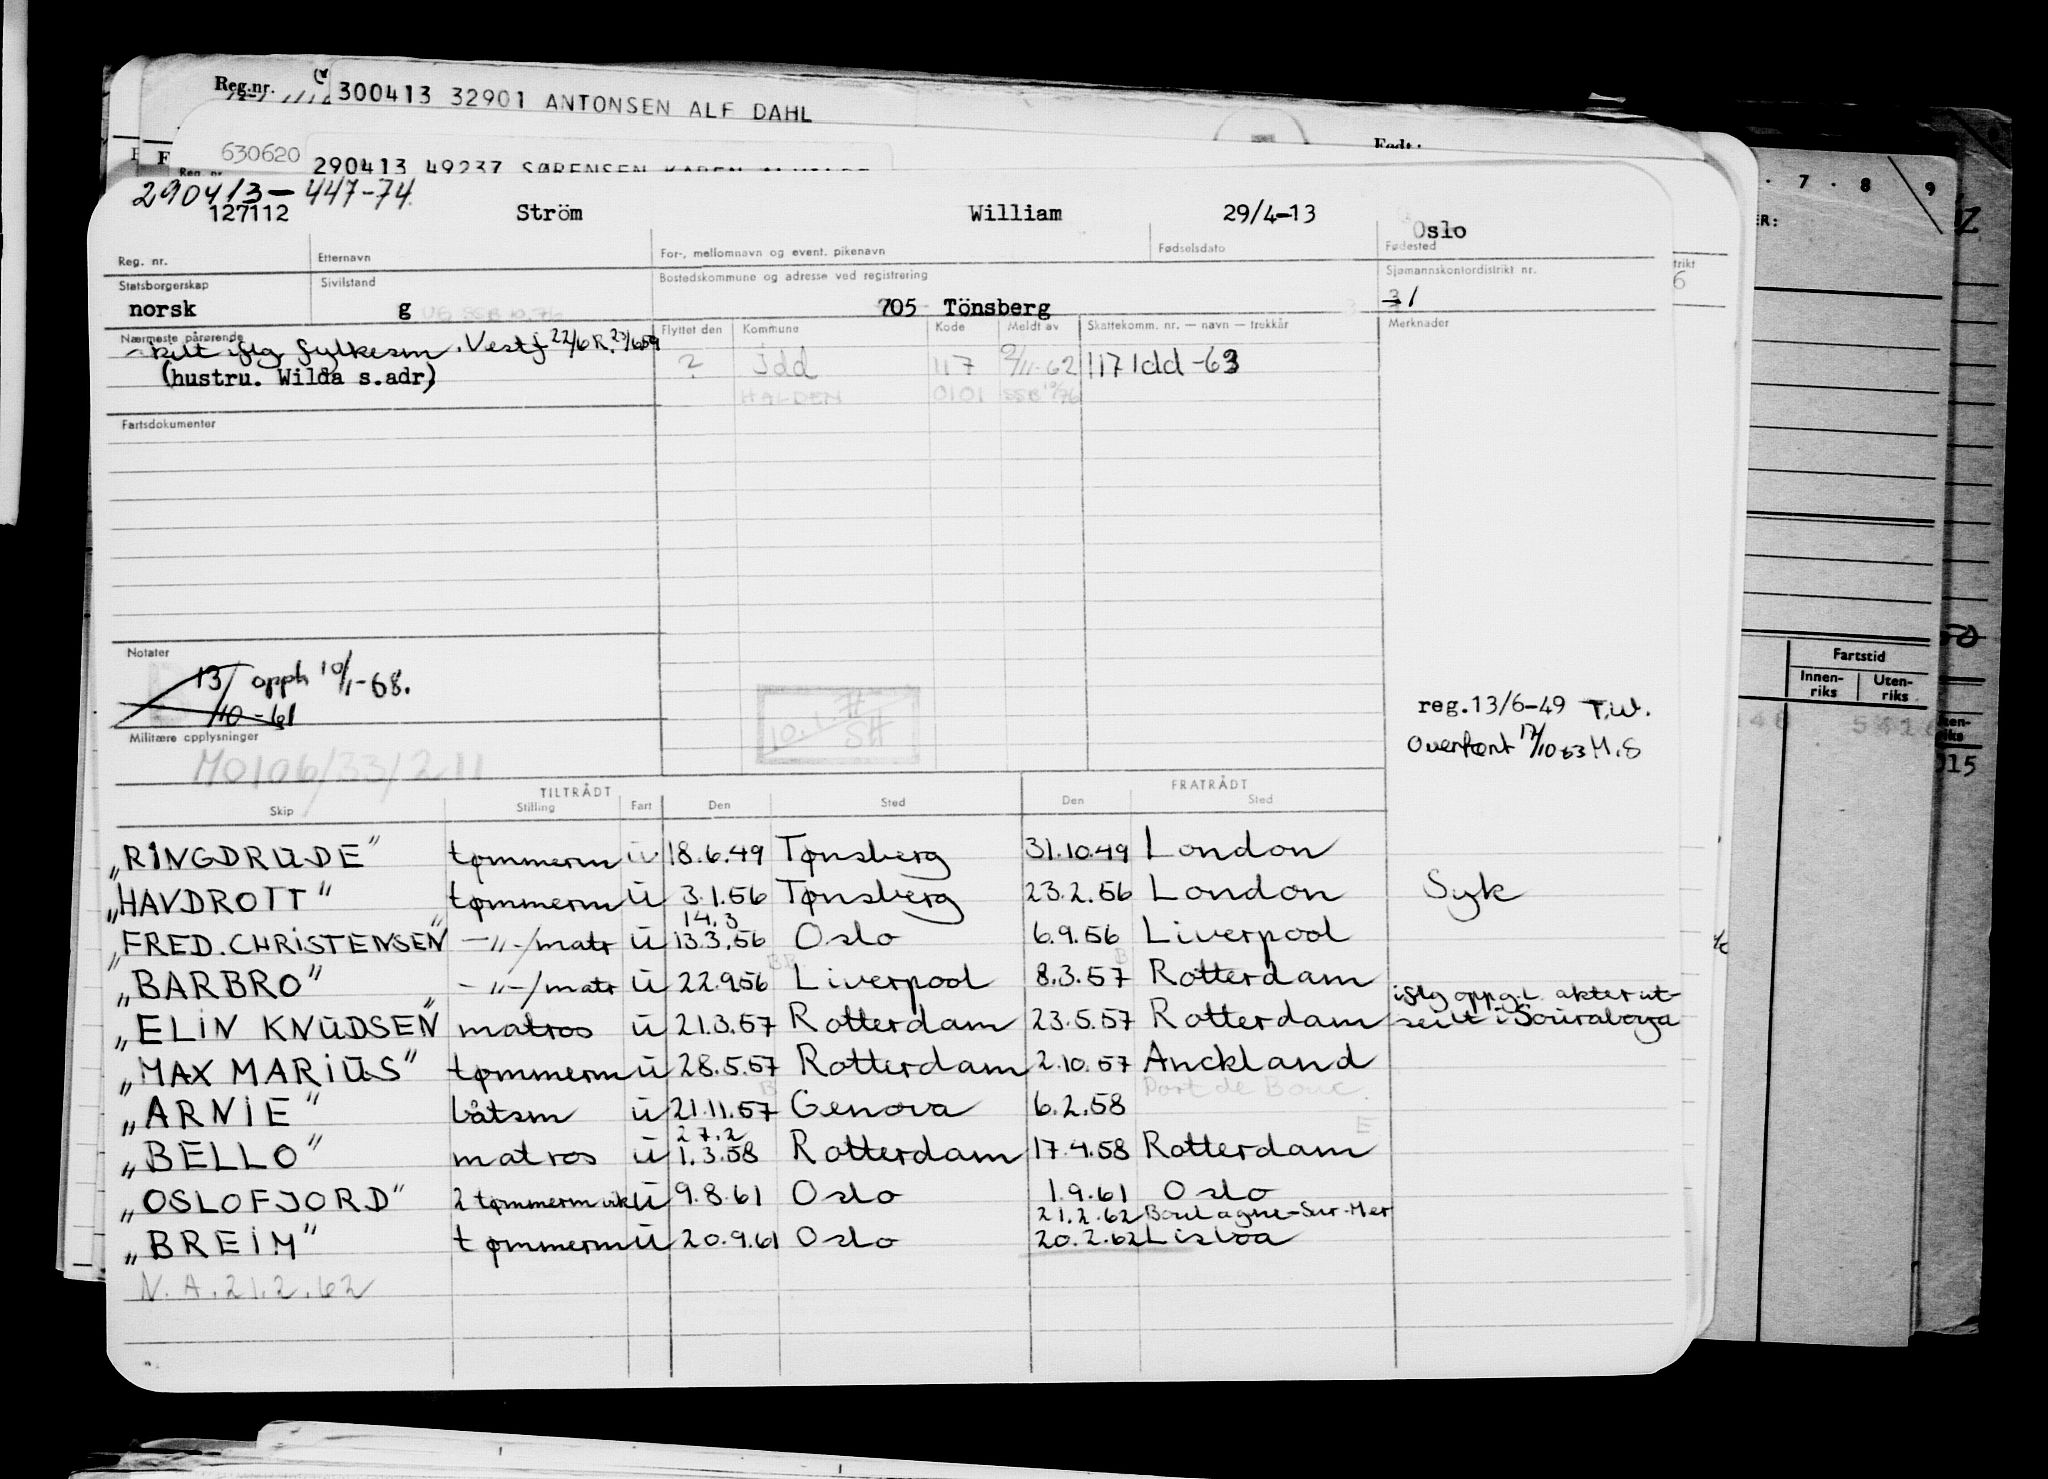 Reg.nr. 300413 32901 ANTONSEN ALF DAHL
Født:
630620 290413 49237 SØRENSEN KAREN
290413-447-74
127112 Ström William 29/4-13 Oslo
Reg. nr. Etternavn For-, mellomnavn og event. pikenavn Fødselsdato Fødested
Statsborgerskap Sivilstand Bostedskommune og adresse ved registrering Sjømannskontordistrikt nr.
norsk g 705 Tönsberg 31
Nærmeste pårørende Flyttet den Kommune Kode Meldt av Skattekomm. nr. — navn — trekkår Merknader
skilt iflg fylkesm. Vestf 22/6 R. 23/6 59
(hustru. Wilda s.adr) ? Idd 117 9/11-62 117 Idd -63
HALDEN 0101 SSB 10/76
Fartsdokumenter
Notater
13/10-61 opph 10/1-68.
10.1.77 SH
reg.13/6-49 T.W.
Overført 17/10 63 M.S
Militære opplysninger
M0106/33/211
TILTRÅDT FRATRÅDT
Skip Stilling Fart Den Sted Den Sted
"RINGDRUDE" tømmerm u 18.6.49 Tønsberg 31.10.49 London
"HAVDROTT" tømmerm u 3.1.56 Tønsberg 23.2.56 London Syk
14.3
"FRED. CHRISTENSEN" -"-/matr u 13.3.56 Oslo 6.9.56 Liverpool
"BARBRO" -"-/matr u 22.9.56 Liverpool 8.3.57 Rotterdam
"ELIN KNUDSEN" matros u 21.3.57 Rotterdam 23.5.57 Rotterdam iflg oppg. akterut-
seilt i Sourabaya
"MAX MARIUS" tømmerm u 28.5.57 Rotterdam 2.10.57 Auckland
Port de Bouc.
"ARNIE" båtsm u 21.11.57 Genova 6.2.58
27.2
"BELLO" matros u 1.3.58 Rotterdam 17.4.58 Rotterdam
"OSLOFJORD" 2 tømmerm vik u 9.8.61 Oslo 1.9.61 Oslo
21.2.62 Boulagne-Sur-Mer
"BREIM" tømmerm u 20.9.61 Oslo 20.2.62 Lisboa
N.A. 21.2.62
7 · 8 9
Fartstid
Innen-riks Uten-riks